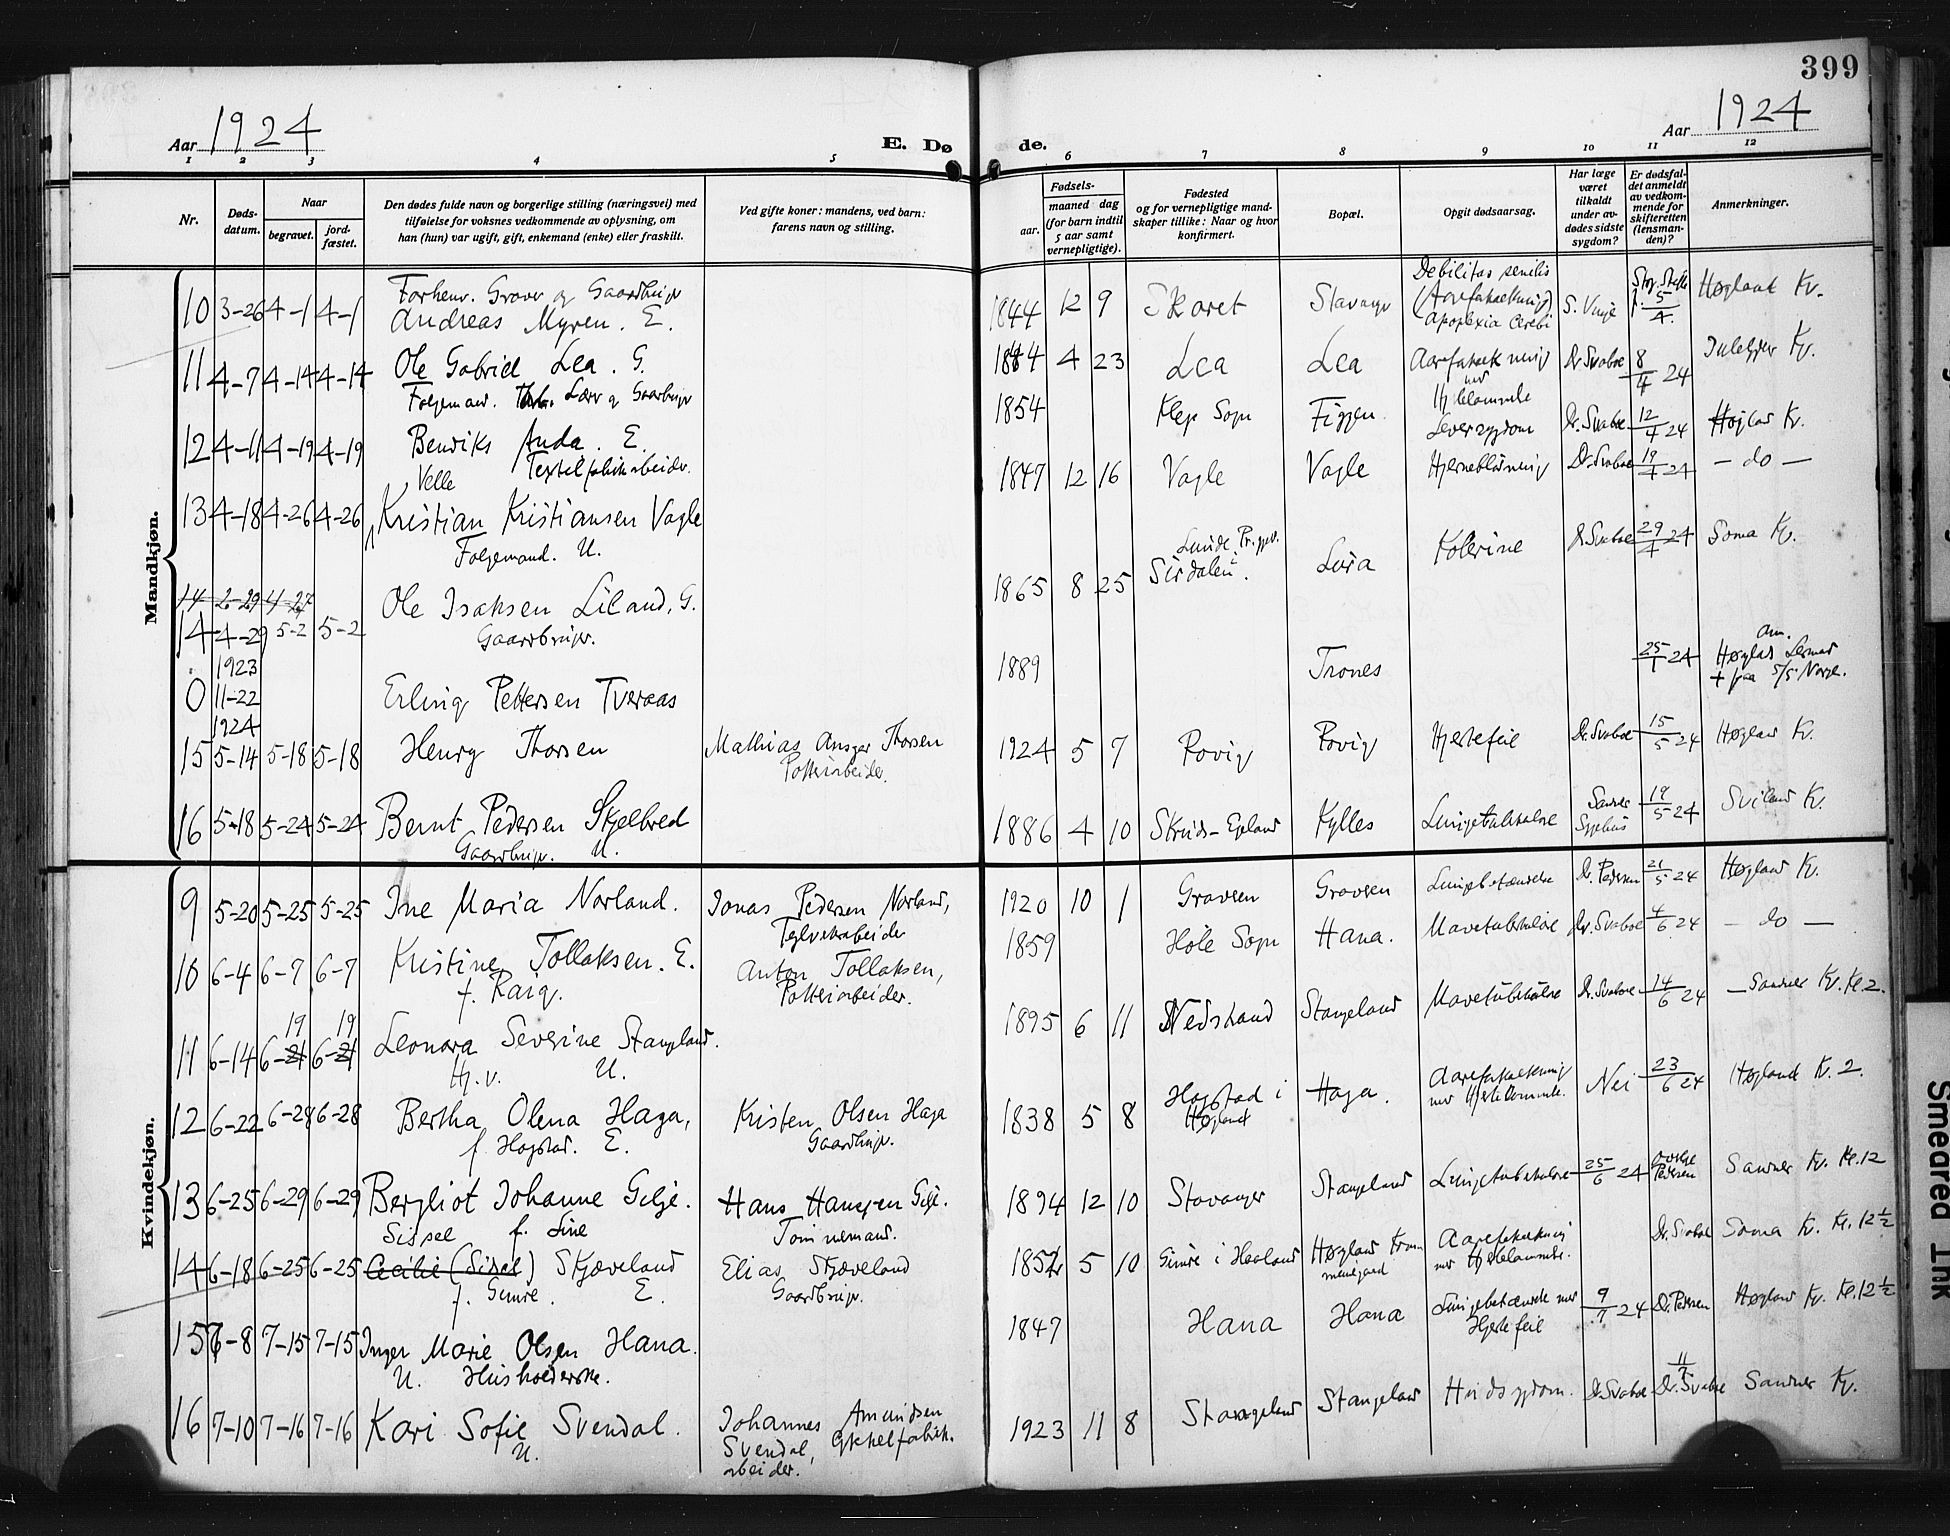 399
Aar 1924
E. Dø
de.
Aar 1924
1 2 3 4 5
6 7 8 9 10 11 12
Nr.
Døds-
datum.
Naar
begravet.
jord-
fæstet.
Den dødes fulde navn og borgerlige stilling (næringsvei) med
tilføielse for voksnes vedkommende av oplysning, om
han (hun) var ugift, gift, enkemand (enke) eller fraskilt.
Ved gifte koner: mandens, ved barn:
farens navn og stilling.
Fødsels-
aar.
maaned dag
(for barn indtil
5 aar samt
vernepligtige).
Fødested
og for vernepligtige mand-
skaper tillike: Naar og hvor
konfirmert.
Bopæl.
Opgit dødsaarsag.
Har læge
været
tilkaldt
under av-
dødes sidste
sygdom?
Er dødsfal-
det anmeldt
av vedkom-
mende for
skifteretten
(lensman-
den)?
Anmerkninger.
Mandkjøn.
10 3-26 4-1 4-1
Forhenv. Graver og Gaardbruger
Andreas Myren. E.
1844 12 9 Skaret Stavanger
Debilitas senilis
(Aareforkalkning)
Apoplexia Cerebi
5/4
Høgland Kv.
11 4-7 4-14 4-14 Ole Gabriel Lea. G.
Folgemand. Lærer og Gaardbruger
1844 4 23 Lea Lea Aareforkalkning
med
Hj. blammelse
Dr Svaboe 8/4 24
12 4-11 4-19 4-19 Bendiks Anda. E.
Textilfabrikarbeider.
1854 Klep Sogn Figgen. Leversygdom Dr. Svaboe 12/4 24
13 4-18 4-26 4-26
Velle
Kristian Kristiansen Vagle
Folgemand. U.
1847 12 16 Vagle Vagle Hjerneblødning Dr. Svaboe 19/4 24 - do -
14 2-29 4-27
14 4-29 5-2 5-2 Ole Isaksen Liland, G.
Gaardbruger.
1865 8 25
Sirdalen.
Lura Kolerine Dr Svaboe 29/4 24 Soma Kv.
0 1923
11-22
Erling Pettersen Tveraas
1889 Trones 25/1 24
1924
15 5-14 5-18 5-18 Henry Thorsen
Mathias Ansgar Thorsen
Potteriarbeider.
1924 5 7 Rovig Rovig Hjertefeil Dr. Svaboe 15/5 24 Høgland Kv.
16 5-18 5-24 5-24 Bernt Pedersen Skjelbred
Gaardbruger. U.
1886 4 10 Skrids-Egeland Kylles Lungetuberkulose
Sandnes
Sygehus
19/5 24 Sviland Kv.
Kvindekjøn.
9 5-20 5-25 5-25 Ine Maria Norland.
Jonas Pedersen Norland,
Teglverksarbeider
1920 10 1 Gravsen Gravsen Lungebetændelse Dr. Pedersen 21/5 24 Høgland Kv.
10 6-4 6-7 6-7 Kristine Tollaksen. E.
Anton Tollaksen,
Potteriarbeider.
1859 Høle Sogn Hana. Mavetuberkulose Dr. Svaboe 4/6 24 - do -
11 6-14 6-21 19 6-21 19 Leonora Severine Stangeland.
Hj. v. U.
1895 6 11 Nedstrand Stangeland Mavetuberkulose Dr. Svaboe 14/6 24 Sandnes Kv. Kl. 2.
12 6-22 6-28 6-28 Bertha Olena Haga,
f. Hogstad. E.
Kristen Olsen Haga
Gaardbruger.
1838 5 8 Hogstad i
Høgland
Haga. Aareforkalkning
med Hjertelammelse.
Nei 23/6 24 Høgland Kv. 2.
13 6-25 6-29 6-29 Bergliot Johanne Gilje.
f. Line
Hans Hansen Gilje.
Tømmermand.
1894 12 10 Stavanger Stangeland Lungetuberkulose 25/6 24
Pedersen
Sandnes Kv. Kl. 12
14 6-18 6-25 6-25
Sissel
Cecilie (Sissel) Skjæveland
f. Gimre. E.
Elias Skjæveland
Gaardbruger.
1852 5 10 Gimre i Høiland
Aareforkalkning
med Hjertelammelse.
Dr. Svaboe Soma Kv. Kl. 12½
15 7-8 7-15 7-15 Inger Marie Olsen Hana.
U. Husholderske.
1847 Hana Hana Lungebetændelse med
Hjertefeil
9/7 24 Dr. Pedersen Høgland Kv. Kl. 12½
16 7-10 7-16 7-16 Kari Sofie Svendal.
U.
Johannes Amundsen
Svendal, Cykkelfabrik.
arbeider.
1923 11 8 Stangeland Stangeland Hudsygdom. Dr. Svaboe 11/7 Dr. Svaboe Sandnes Kv.
Smeared Ink